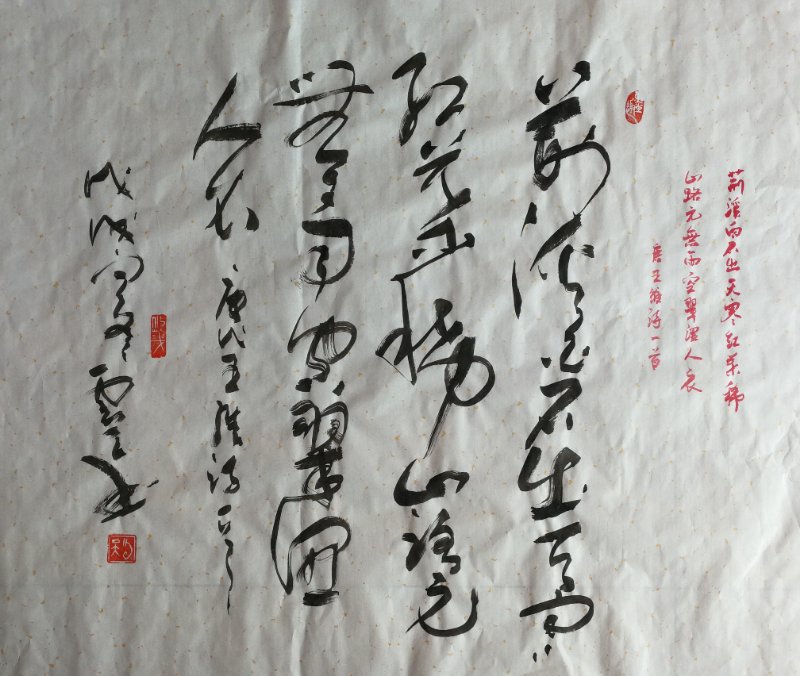 荊溪白石出天寒红葉稀
山路元無雨空翠湿人衣
唐王維詩一首
荆溪白石出天寒
红葉稀山路元
無雨空翠湿
人衣 唐代王維詩一首
戊戌 冬